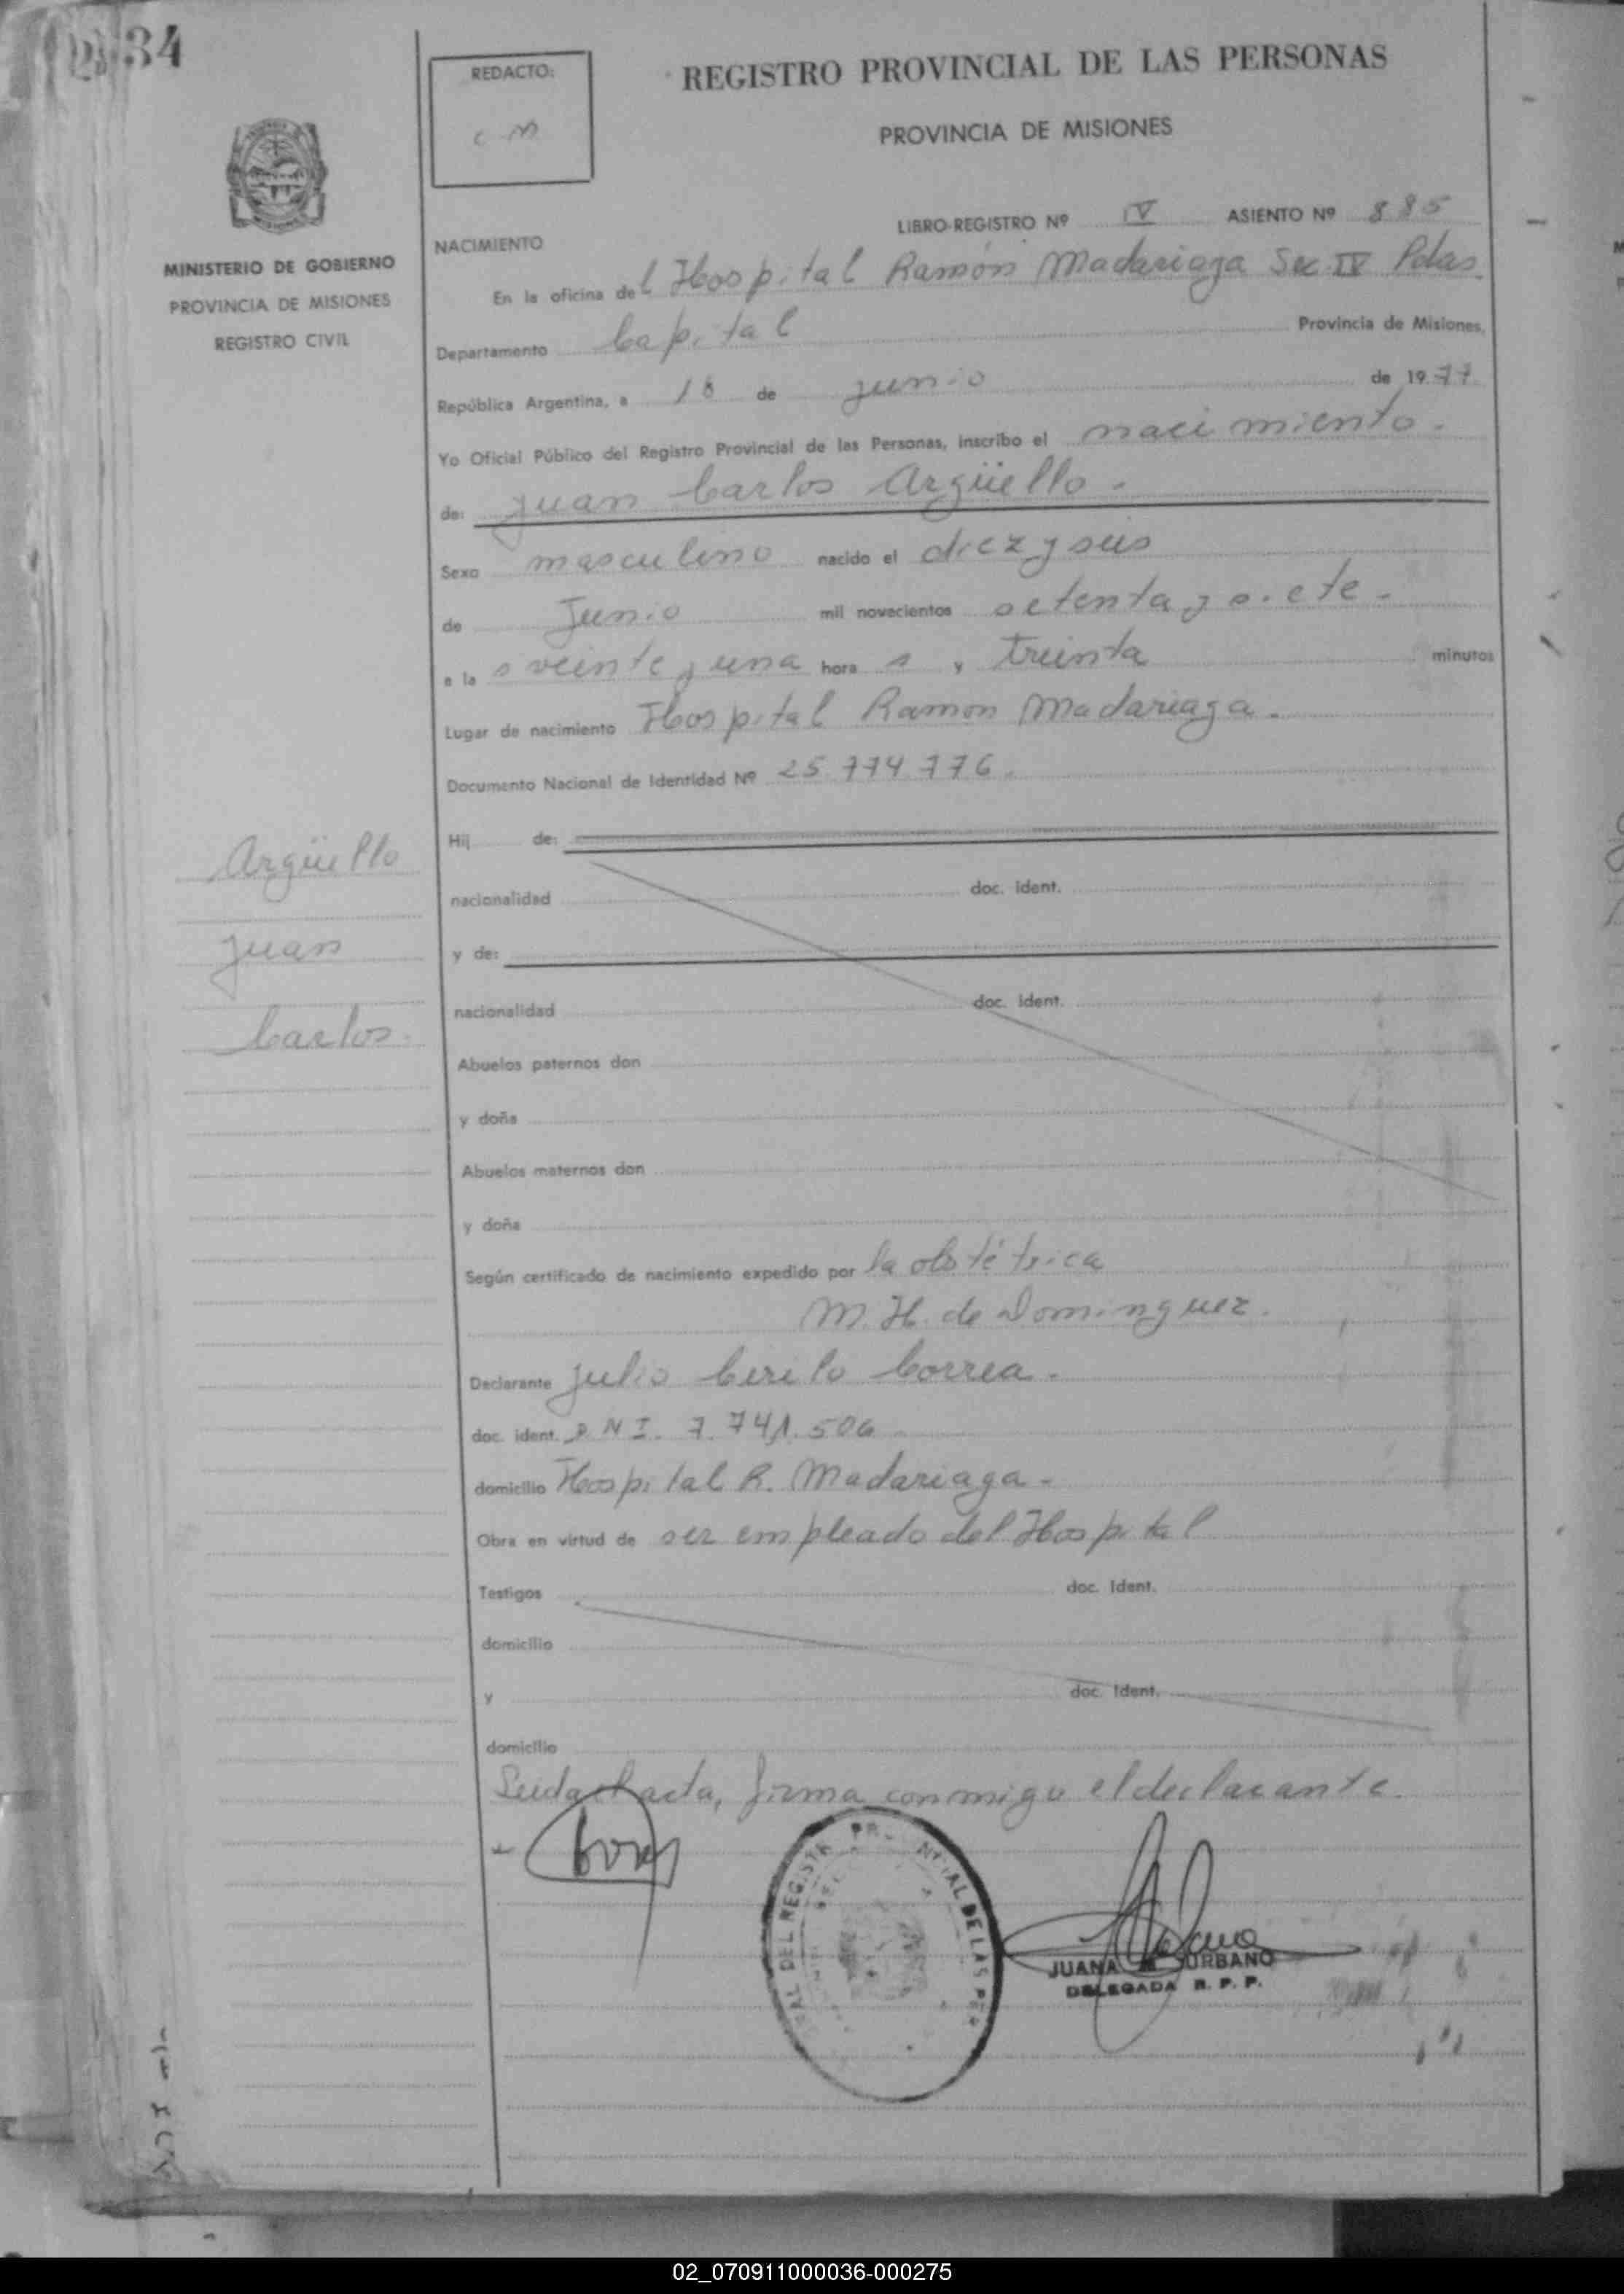 34
REDACTO:
C M
REGISTRO PROVINCIAL DE LAS PERSONAS
PROVINCIA DE MISIONES
MINISTERIO DE GOBIERNO
PROVINCIA DE MISIONES
REGISTRO CIVIL
LIBRO-REGISTRO Nº IV ASIENTO Nº 885
NACIMIENTO
En la oficina del Hospital Ramón Madariaga Sec. IV Pdas.
Departamento Capital Provincia de Misiones,
República Argentina, a 18 de junio de 1977.
Yo Oficial Público del Registro Provincial de las Personas, inscribo el nacimiento.
de: Juan Carlos Argüello.
Sexo masculino nacido el diez y seis
de Junio mil novecientos setenta y siete.
a las veinte y una horas y treinta minutos
Lugar de nacimiento Hospital Ramón Madariaga.
Documento Nacional de Identidad Nº 25.774.776.
Argüello
Juan
Carlos.
Hij de:
nacionalidad doc. ident.
y de:
nacionalidad doc. ident.
Abuelos paternos don
y doña
Abuelos maternos don
y doña
Según certificado de nacimiento expedido por la obstétrica
M. H. de Dominguez.
Declarante Julio Cirilo Correa.
doc. ident. D.N.I. 7.741.506.
domicilio Hospital R. Madariaga.
Obra en virtud de ser empleado del Hospital
Testigos doc. Ident.
domicilio
y doc. Ident.
domicilio
Leida el acta, firma conmigo el declarante.
JUANA URBANO
DELEGADA R. P. P.
02_070911000036-000275